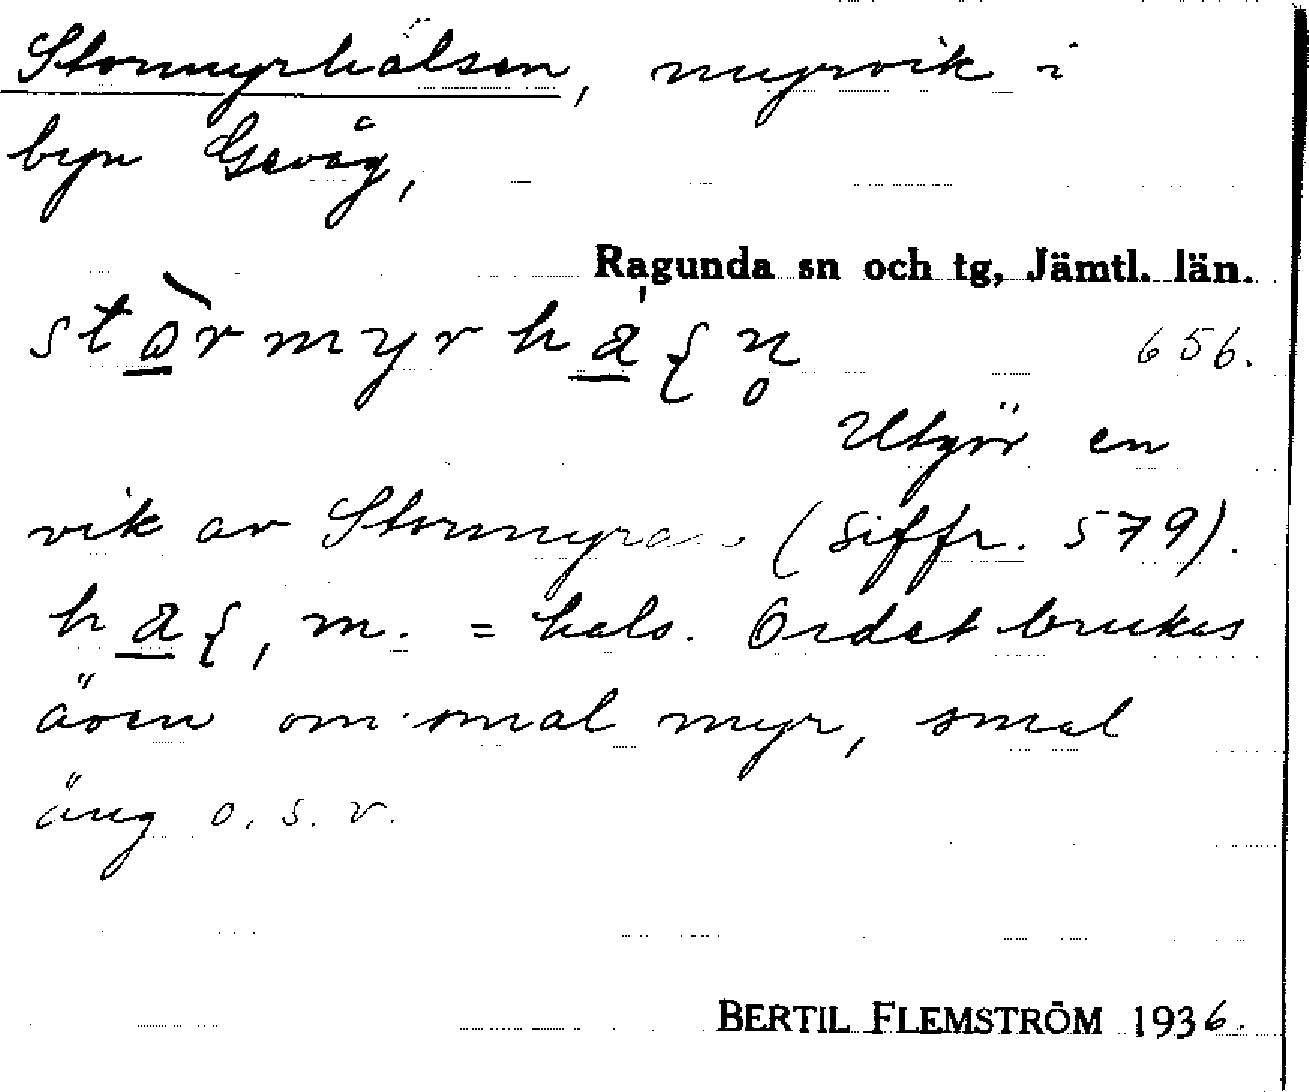 Stormyrhalsen, myrvik i
byn Gevåg,
Ragunda sn och tg, Jämtl. län.
656.
Utgör en
vik av Stormyran (Siffr. 579).
m. = hals. Ordet brukas
även om smal myr, smal
äng o. s. v.
BERTIL FLEMSTRÖM 1936.